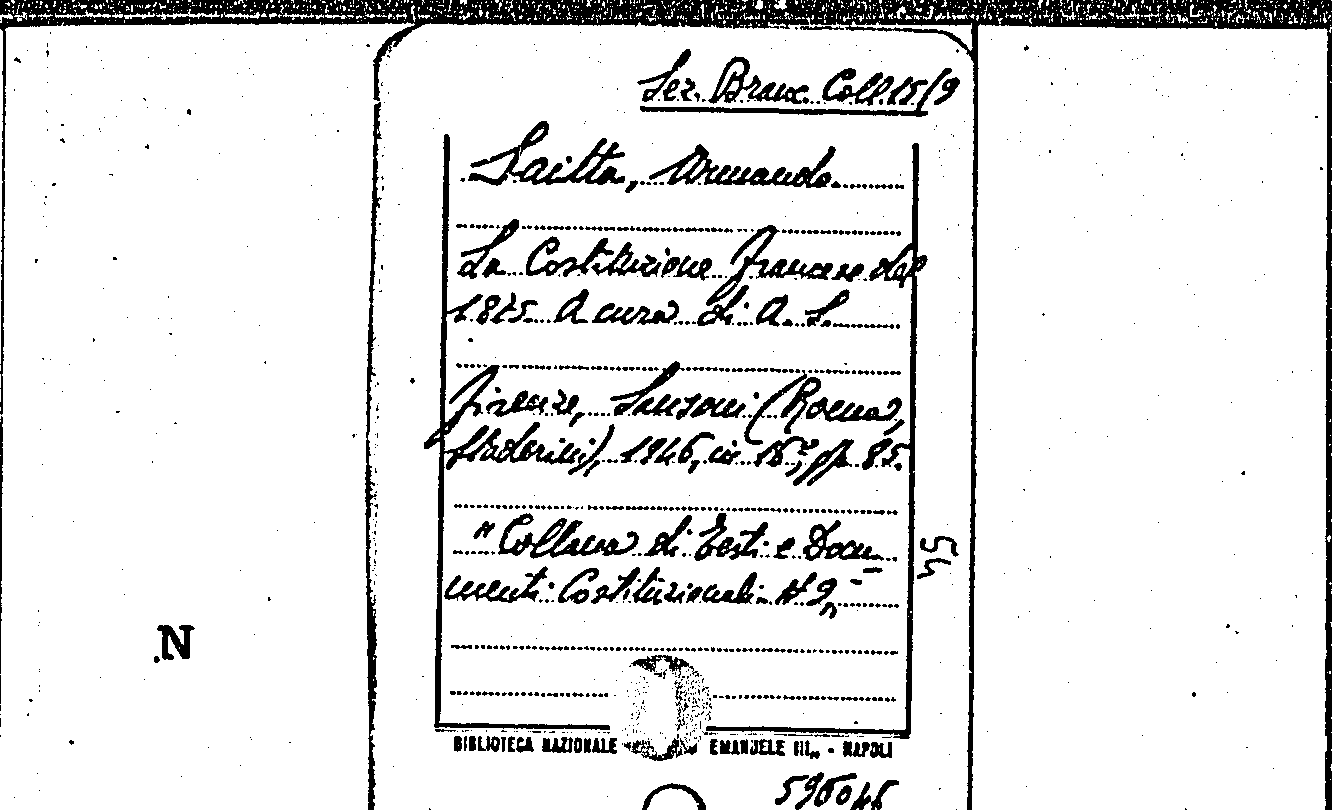 Sez. Branc. Coll. 15/9
Saitta, Armando
La Costituzione francese del
1875. A cura di A. S.
Firenze, Sansoni (Roma,
Staderini), 1946, in 16°, pp. 85.
"Collana di Testi e Docu-
menti Costituzionali. N° 9"
45
N
BIBLIOTECA NAZIONALE EMANUELE III,, - NAPOLI